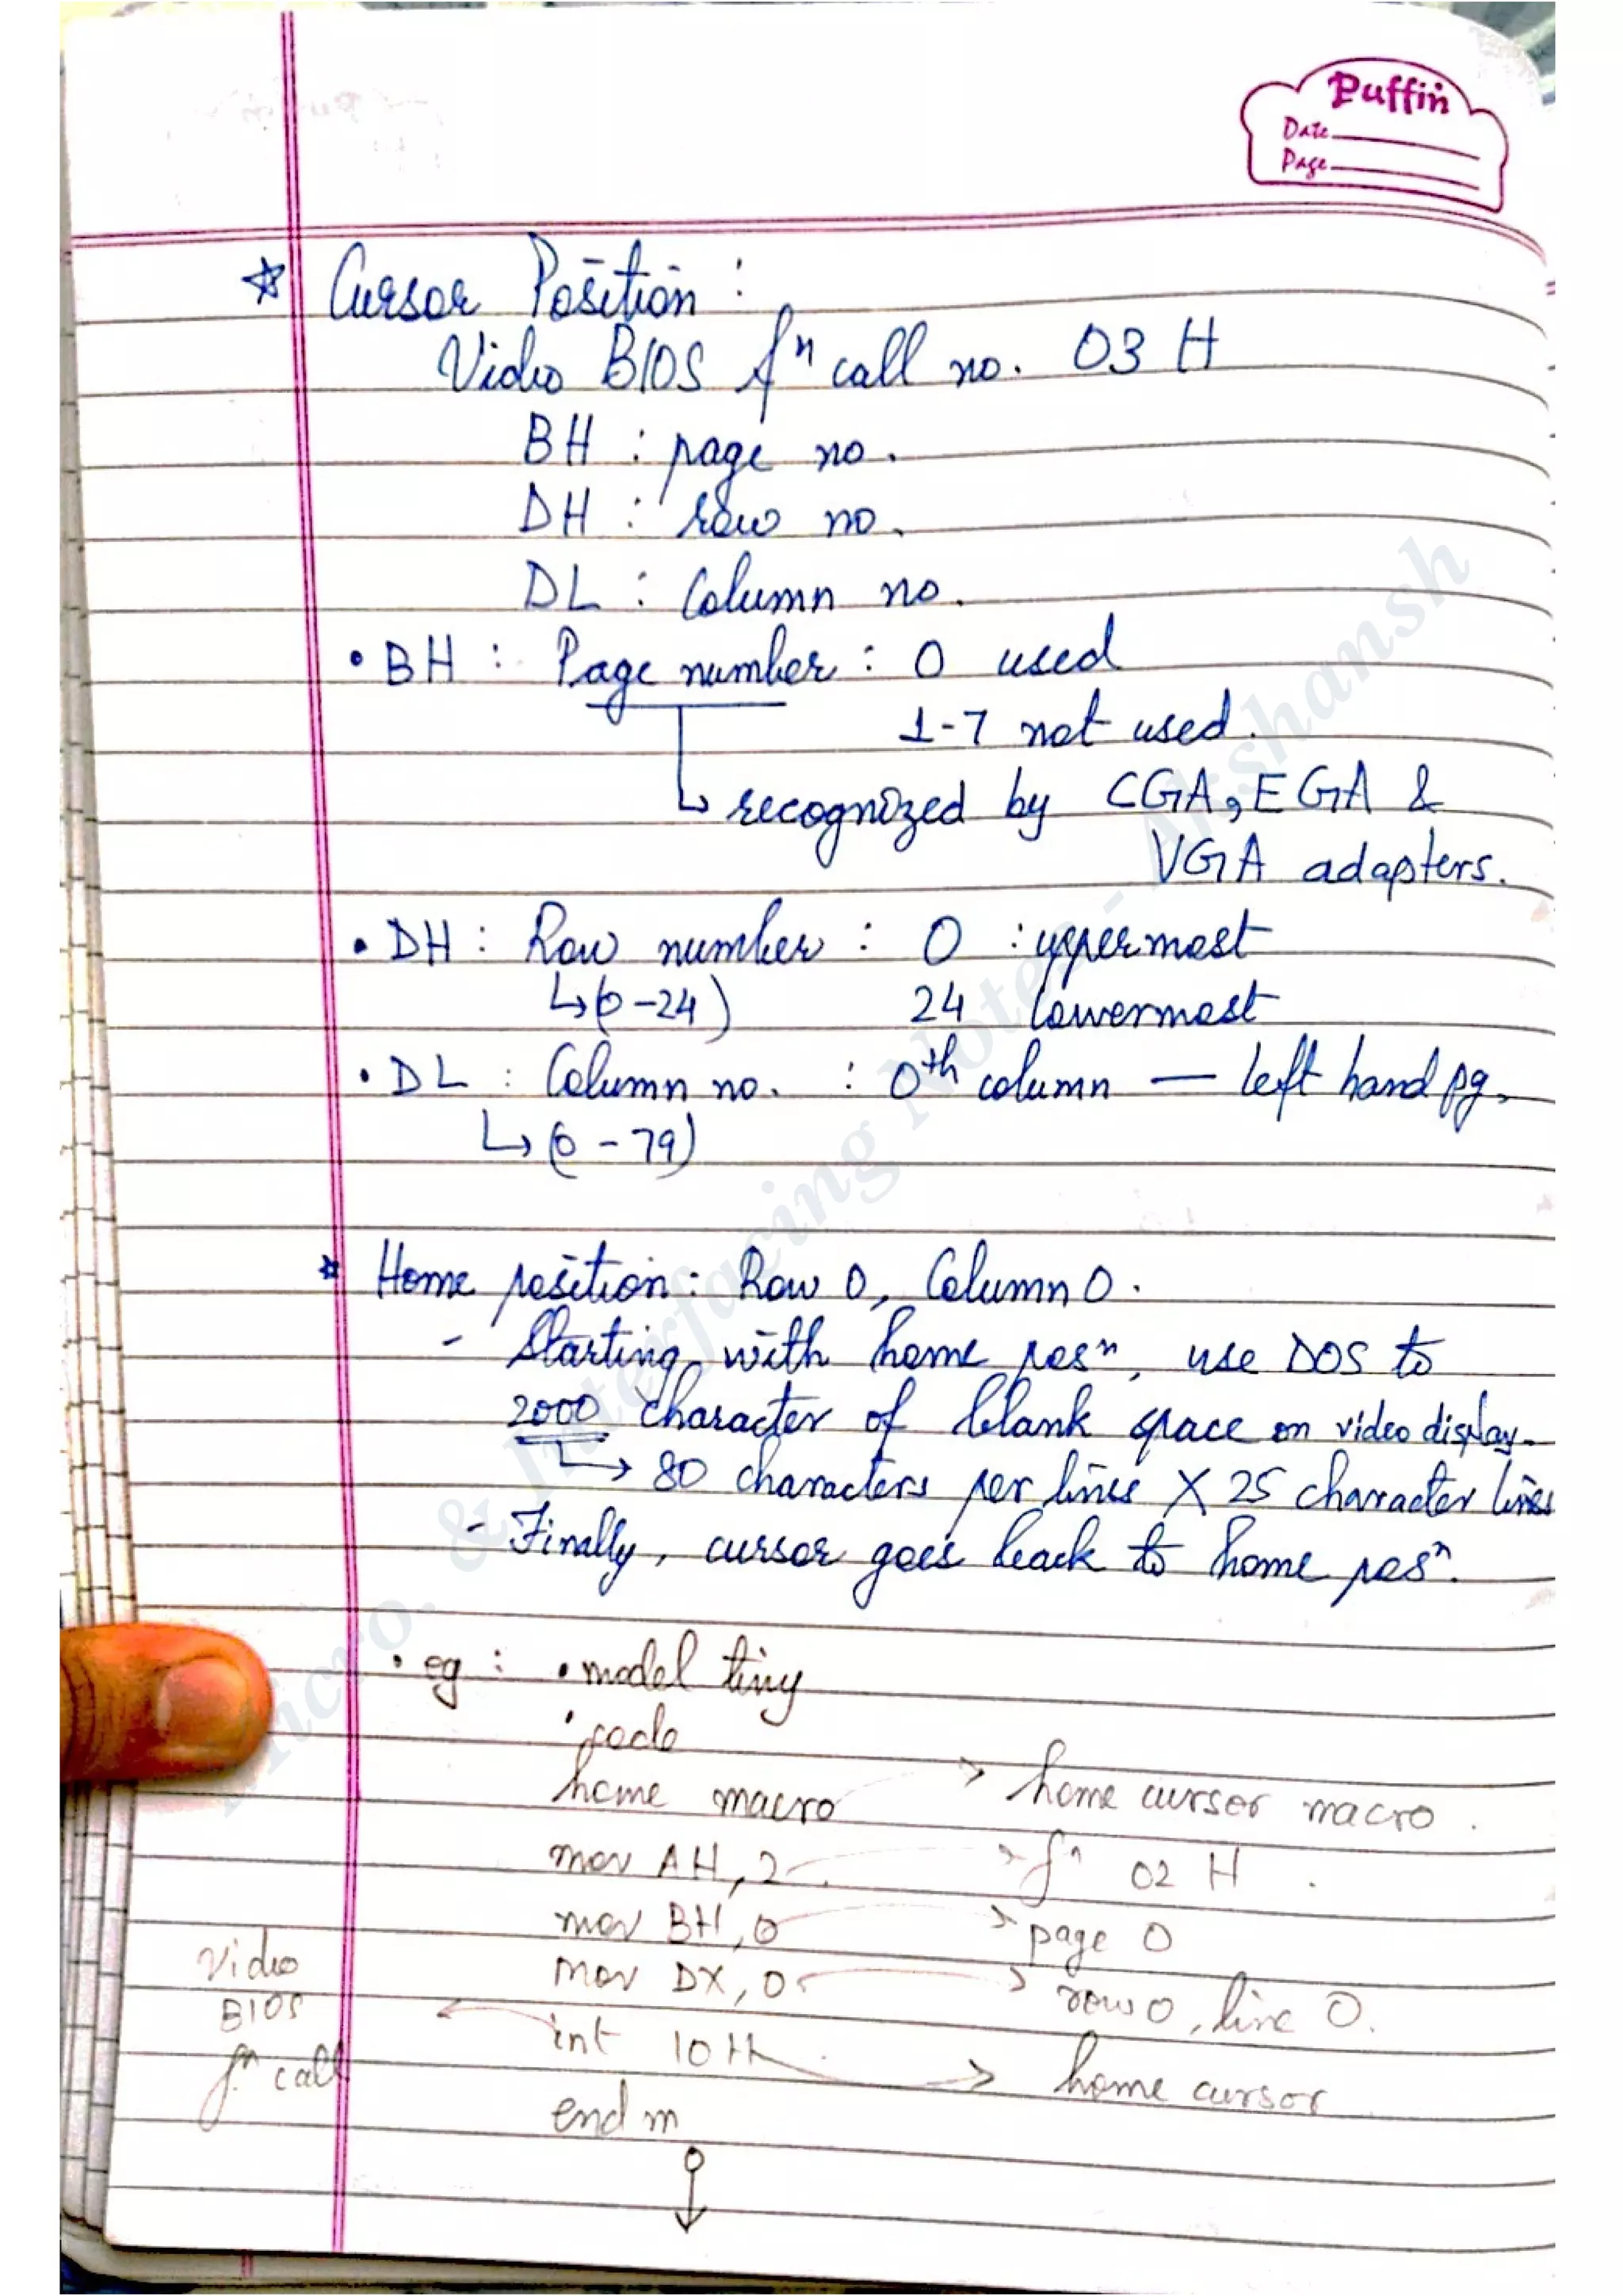 Puffin
Date
Page
☆ Cursor Position :
Video BIOS fⁿ call no. 03 H
BH : page no.
DH : row no.
DL : Column no.
• BH : Page number : 0 used
1-7 not used.
↳ recognized by CGA, EGA &
VGA adapters.
• DH : Row number : 0 : uppermost
↳ (0-24) 24 lowermost
• DL : Column no. : 0th column — left hand pg.
↳ (0-79)
☆ Home position : Row 0, Column 0.
- Starting with home posⁿ, use DOS to
2000 character of blank space on video display.
↳ 80 characters per lines X 25 character lines
- Finally, cursor goes back to home posⁿ.
• eg : .model tiny
.code
home macro → home cursor macro.
mov AH, 2 → fⁿ 02 H.
mov BH, 0 → page 0
mov DX, 0 → row 0, line 0.
int 10H → home cursor
Video
BIOS
fⁿ call
end m
Micro. & Interfacing Notes - Akshansh